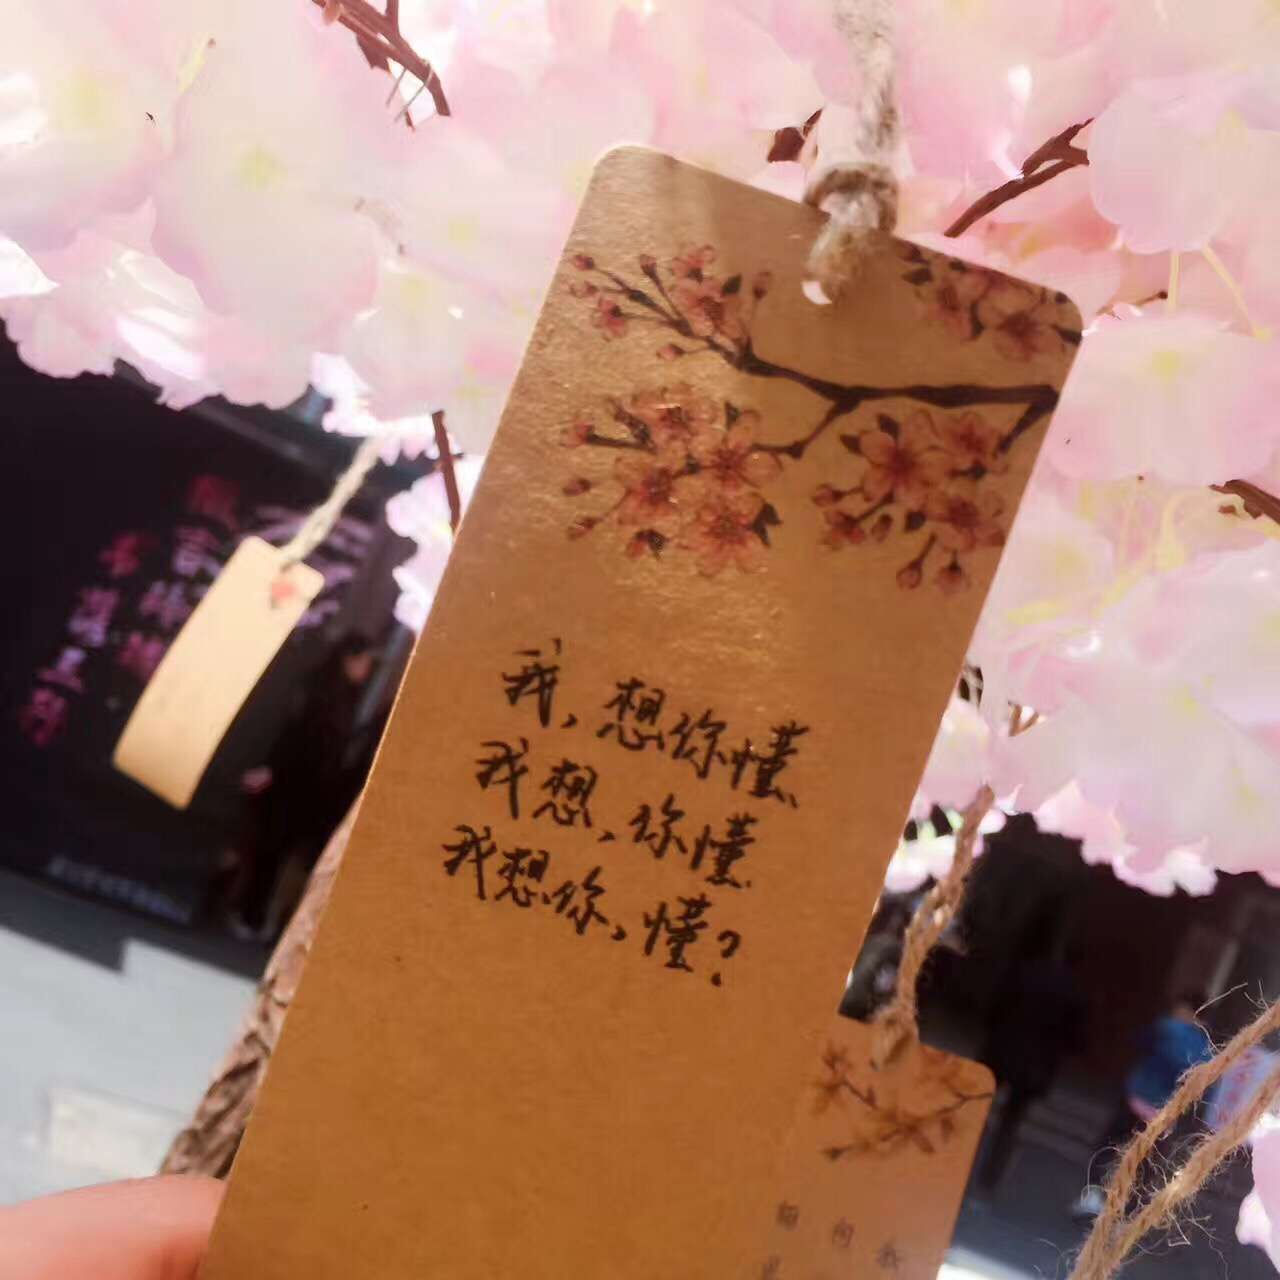 我,想你懂
我想,你懂
我想你,懂?